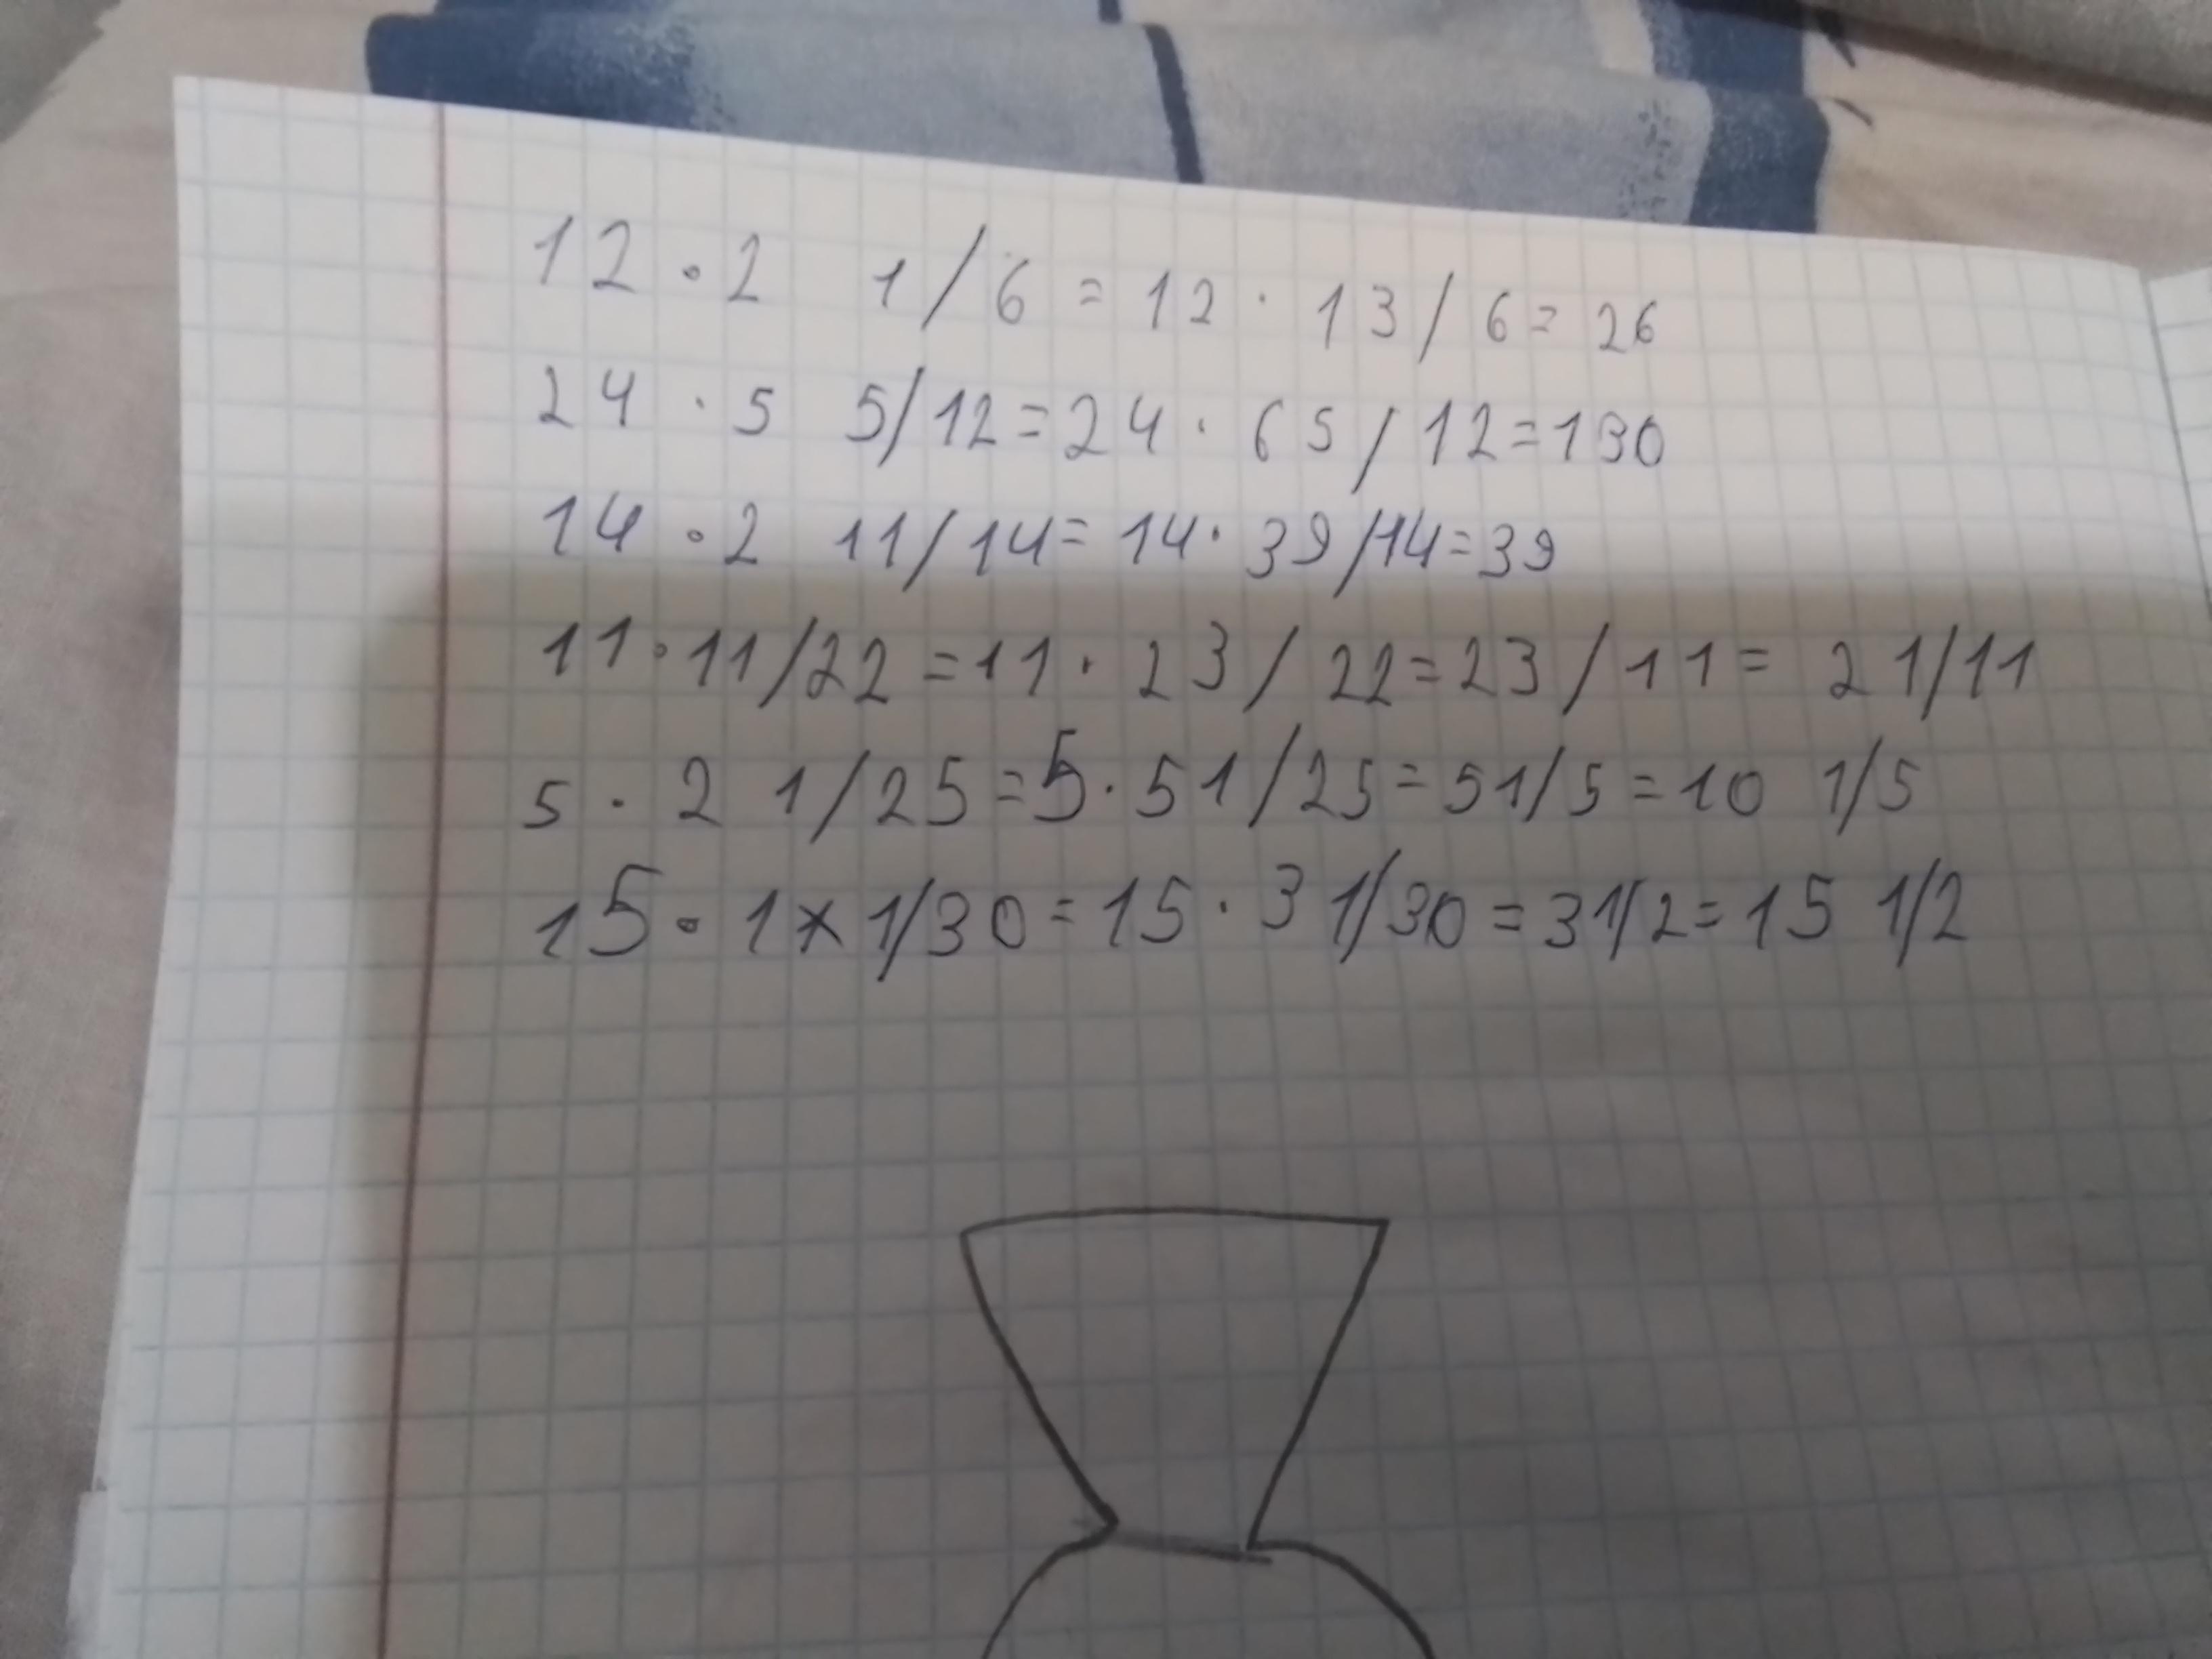 12 · 2 1/6 = 12 · 13/6 = 26
24 · 5 5/12 = 24 · 65/12 = 130
14 · 2 11/14 = 14 · 39/14 = 39
11 · 11/22 = 11 · 23/22 = 23/11 = 21/11
5 · 2 1/25 = 5 · 51/25 = 51/5 = 10 1/5
15 · 1 x 1/30 = 15 · 31/30 = 31/2 = 15 1/2